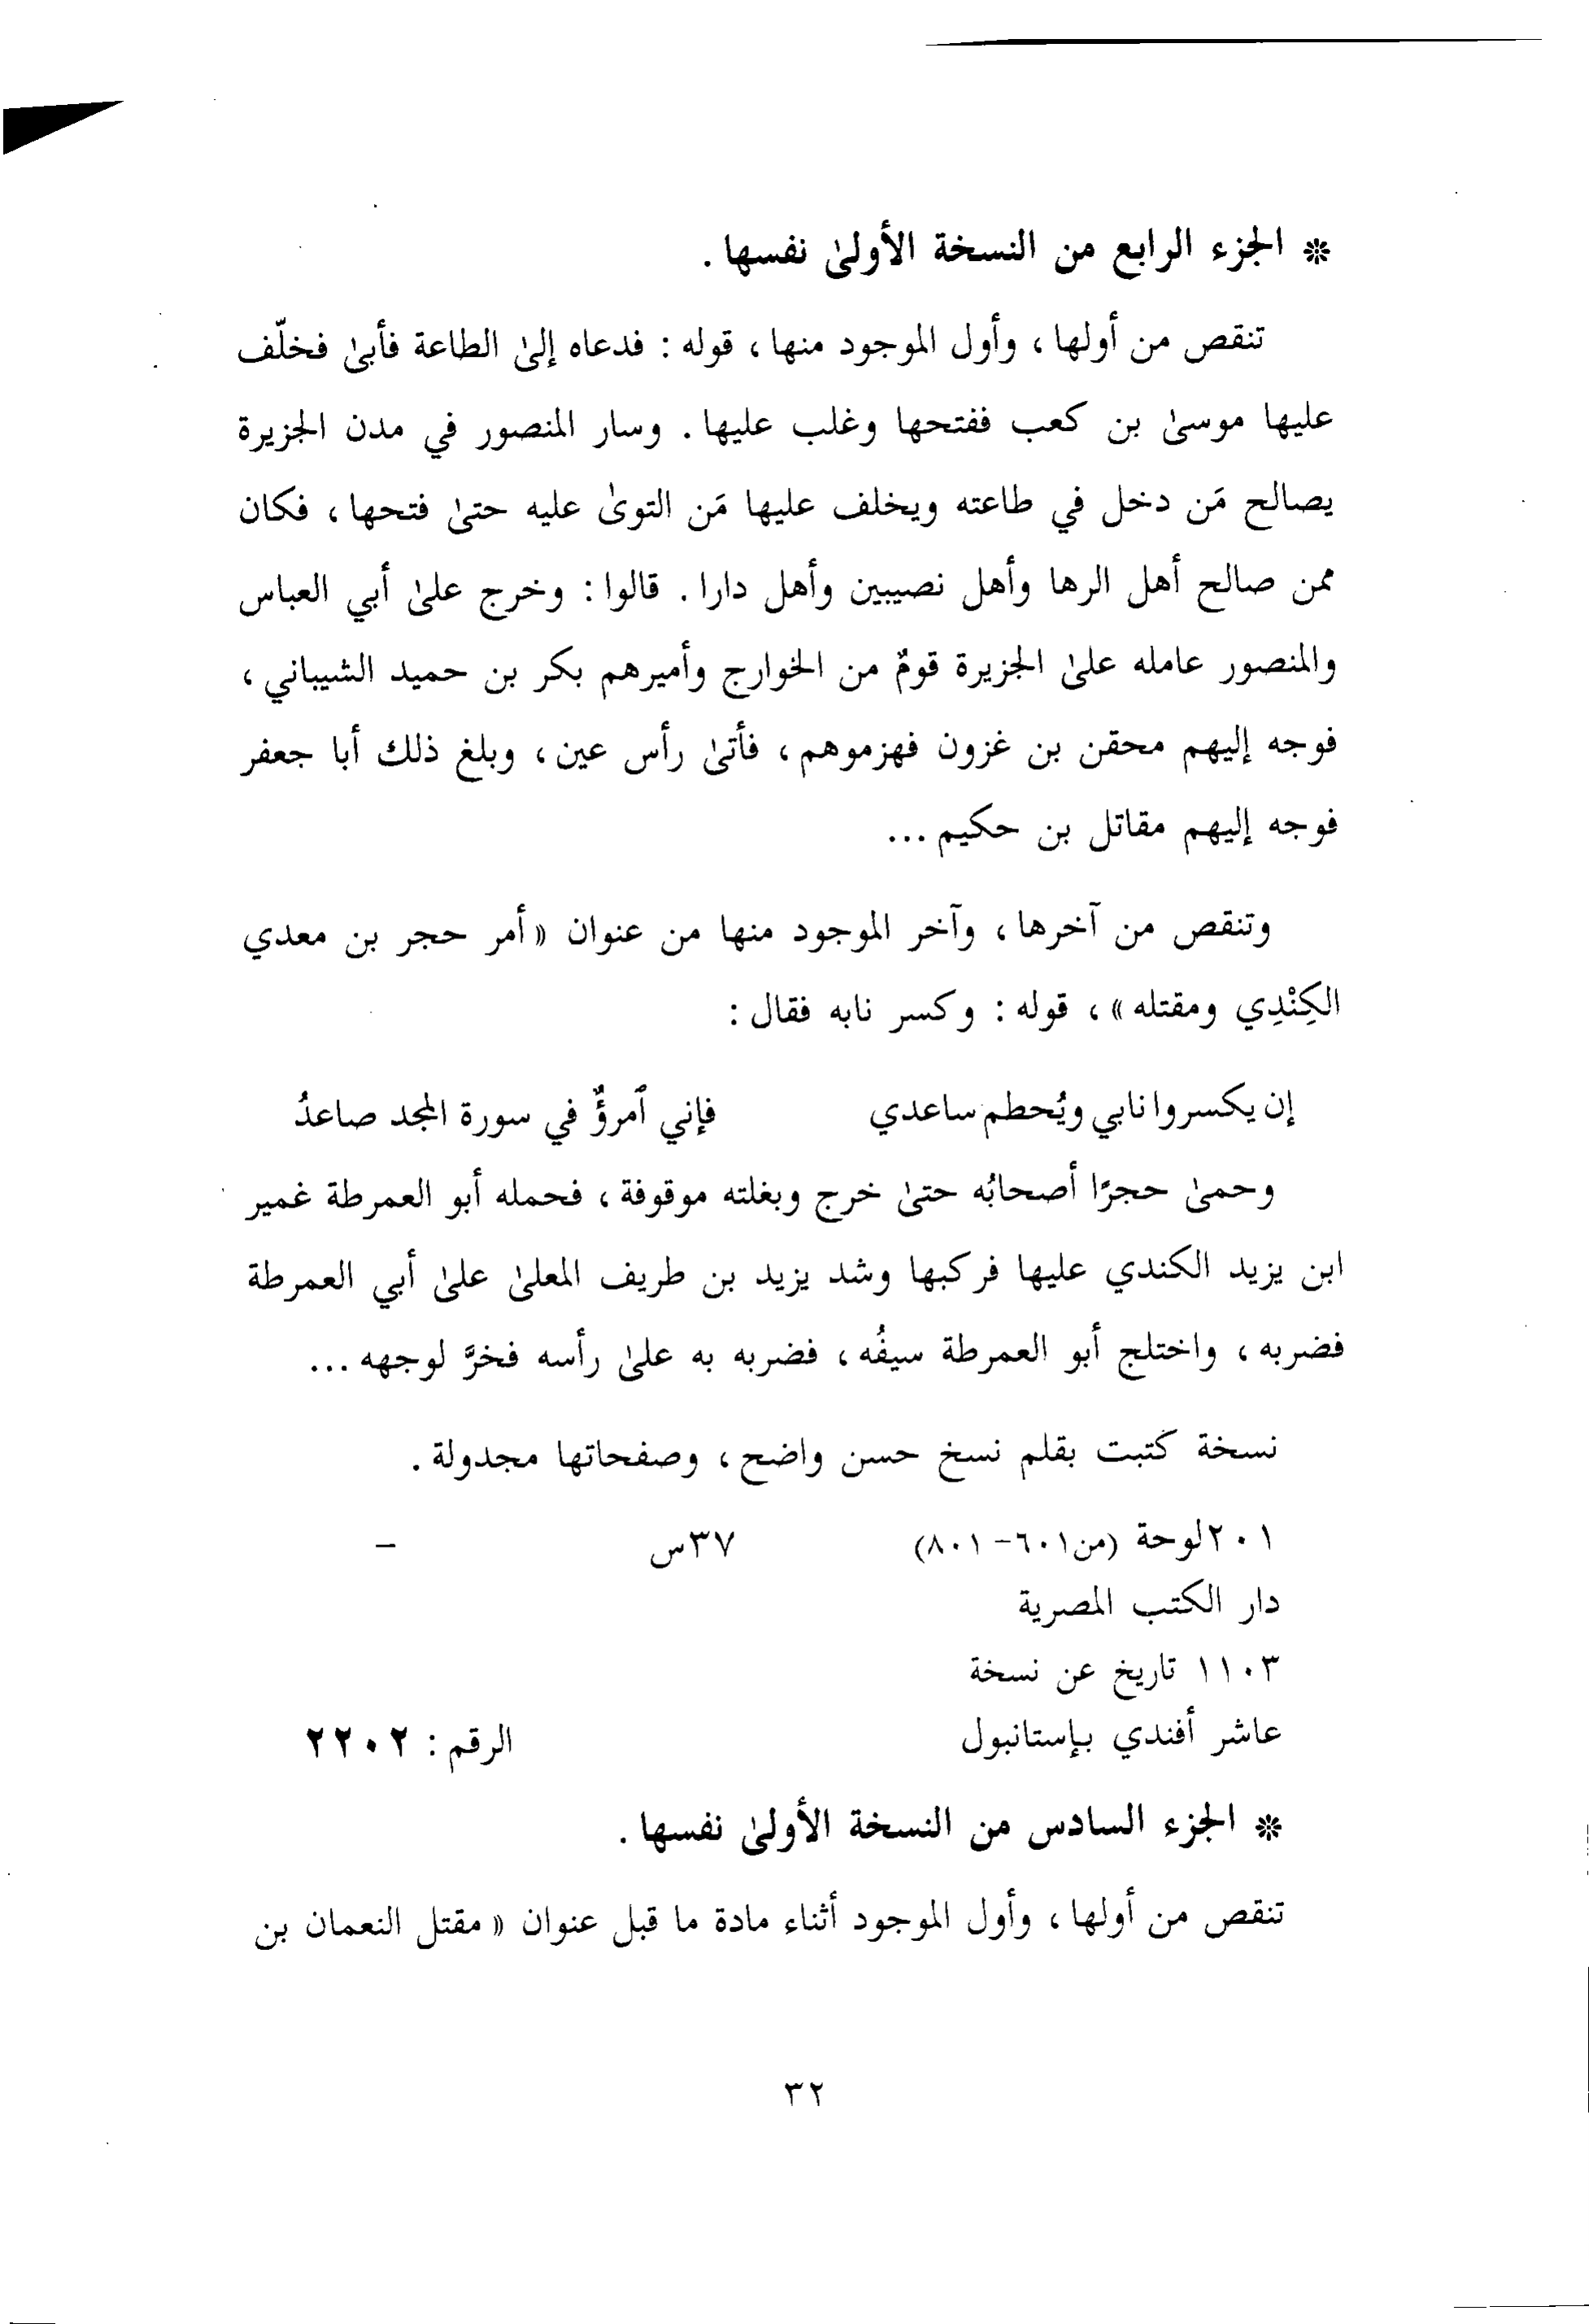 * الجزء الرابع من النسخة الأولىٰ نفسها .
تنقص من أولها ، وأول الموجود منها ، قوله : فدعاه إلىٰ الطاعة فأبىٰ فخلّف
عليها موسىٰ بن كعب ففتحها وغلب عليها . وسار المنصور في مدن الجزيرة
يصالح مَن دخل في طاعته ويخلف عليها مَن التوىٰ عليه حتىٰ فتحها ، فكان
ممن صالح أهل الرها وأهل نصيبين وأهل دارا . قالوا : وخرج علىٰ أبي العباس
والمنصور عامله علىٰ الجزيرة قومٌ من الخوارج وأميرهم بكر بن حميد الشيباني ،
فوجه إليهم محقن بن غزون فهزموهم ، فأتىٰ رأس عين ، وبلغ ذلك أبا جعفر
فوجه إليهم مقاتل بن حكيم ...
وتنقص من آخرها ، وآخر الموجود منها من عنوان « أمر حجر بن معدي
الكِنْدِي ومقتله » ، قوله : وكسر نابه فقال :
إن يكسروا نابي ويُحطم ساعدي فإني ٱمرؤٌ في سورة المجد صاعدُ
وحمىٰ حجرًا أصحابُه حتىٰ خرج وبغلته موقوفة ، فحمله أبو العمرطة غمير
ابن يزيد الكندي عليها فركبها وشد يزيد بن طريف المعلىٰ علىٰ أبي العمرطة
فضربه ، واختلج أبو العمرطة سيفُه ، فضربه به علىٰ رأسه فخرَّ لوجهه ...
نسخة كتبت بقلم نسخ حسن واضح ، وصفحاتها مجدولة .
٢٠١ لوحة (من ٦٠١ - ٨٠١) ٣٧س -
دار الكتب المصرية
١١٠٣ تاريخ عن نسخة
عاشر أفندي بإستانبول الرقم : ٢٢٠٢
* الجزء السادس من النسخة الأولىٰ نفسها .
تنقص من أولها ، وأول الموجود أثناء مادة ما قبل عنوان « مقتل النعمان بن
٣٢